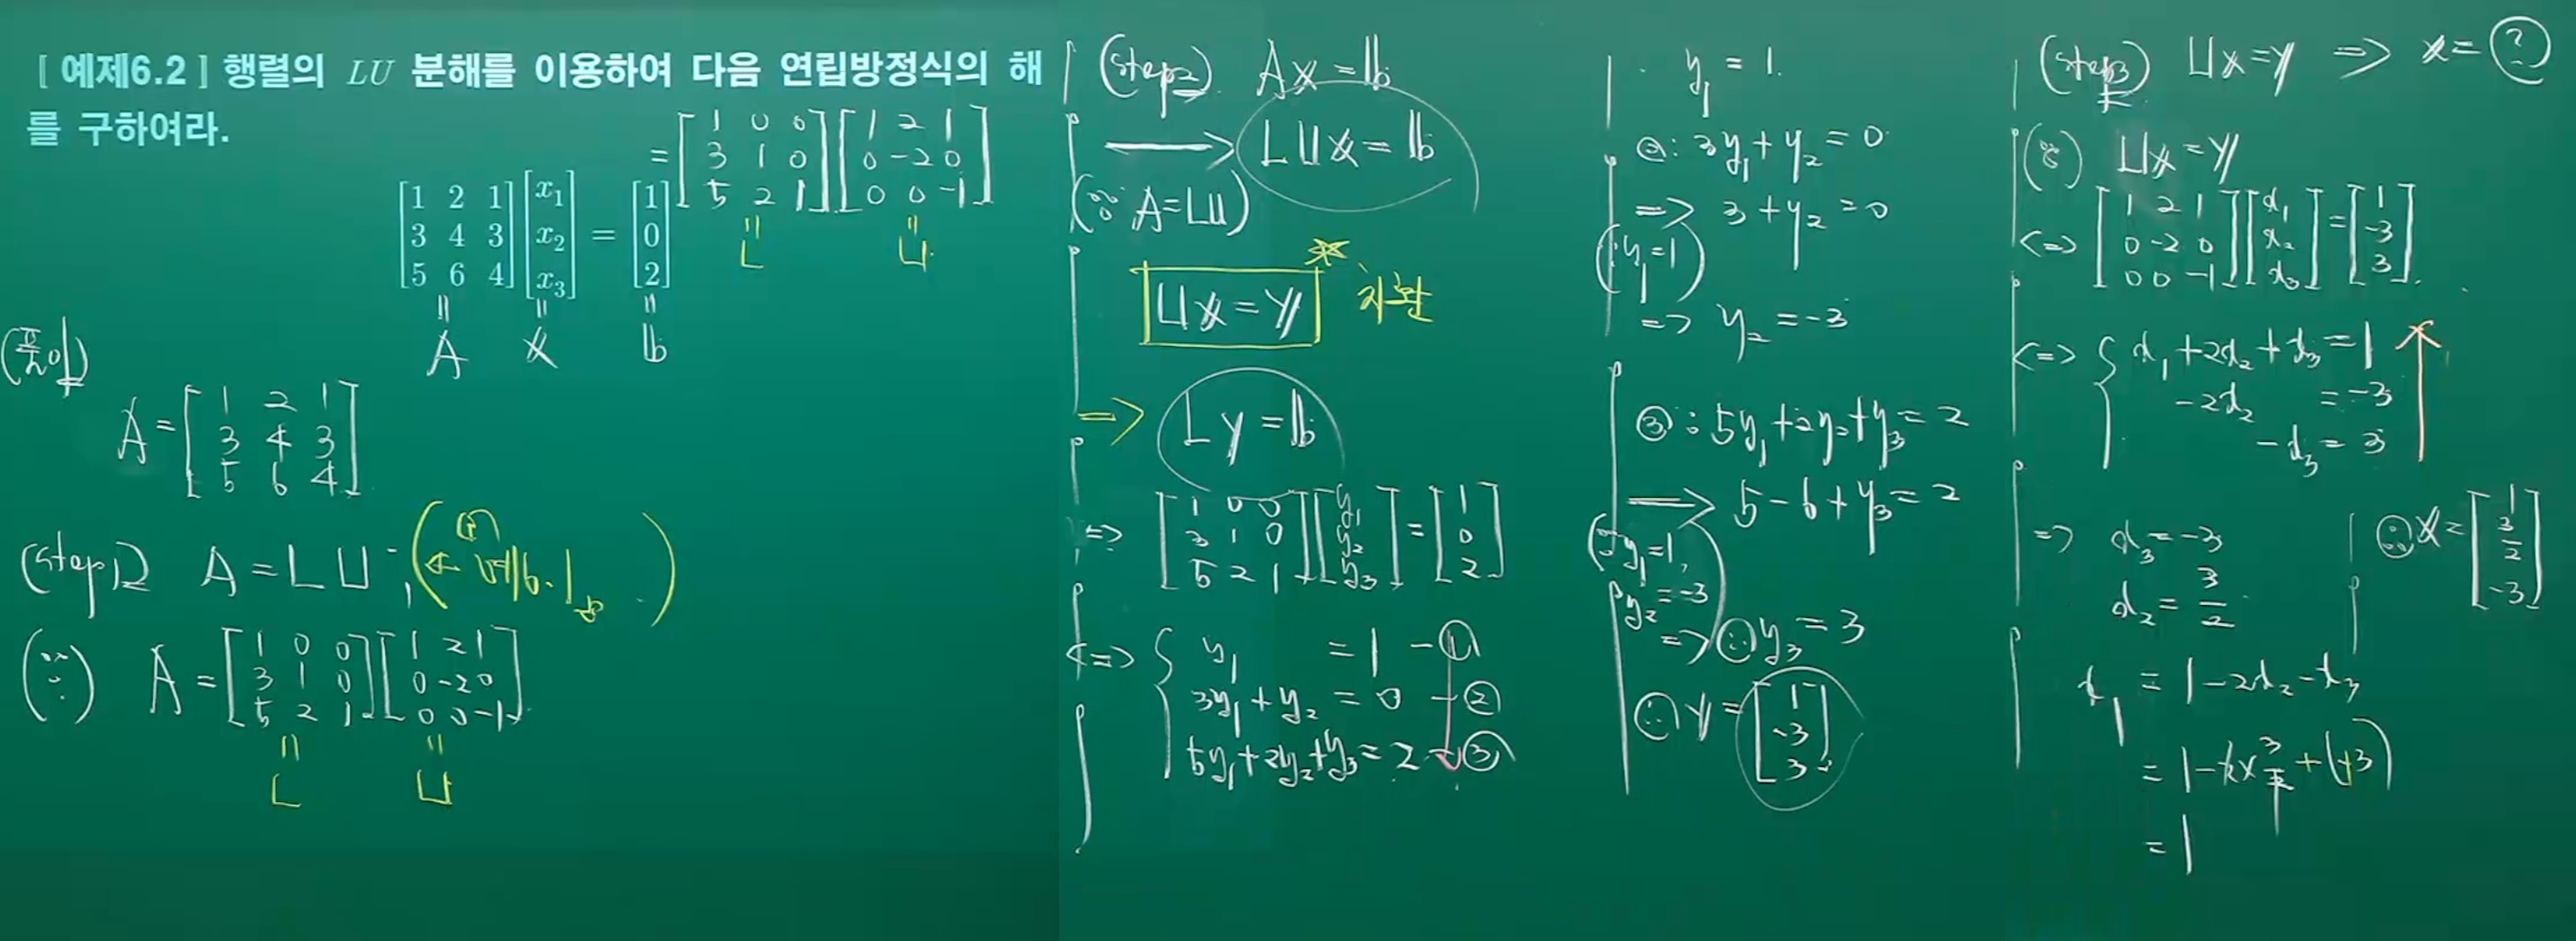 [ 예제6.2 ] 행렬의 LU 분해를 이용하여 다음 연립방정식의 해
를 구하여라.
= [1 0 0; 3 1 0; 5 2 1] [1 2 1; 0 -2 0; 0 0 -1]
= L = U
[1 2 1; 3 4 3; 5 6 4] [x₁; x₂; x₃] = [1; 0; 2]
= A = x = b
(풀이)
A = [1 2 1; 3 4 3; 5 6 4]
(step1) A = LU ; (← 예제6.1)
(∵) A = [1 0 0; 3 1 0; 5 2 1] [1 2 1; 0 -2 0; 0 0 -1]
= L = U
(step2) Ax = b
⟹ LUx = b
(∵ A = LU)
Ux = y * 치환
⇒ Ly = b
⇒ [1 0 0; 3 1 0; 5 2 1] [y₁; y₂; y₃] = [1; 0; 2]
⇔ { y₁ = 1 - ①
3y₁ + y₂ = 0 - ②
5y₁ + 2y₂ + y₃ = 2 - ③
y₁ = 1.
②: 3y₁ + y₂ = 0
⇒ 3 + y₂ = 0
(∵ y₁ = 1)
⇒ y₂ = -3
③: 5y₁ + 2y₂ + y₃ = 2
⟹ 5 - 6 + y₃ = 2
(∵ y₁ = 1,
y₂ = -3)
⇒ ∴ y₃ = 3
∴ y = [1; -3; 3]
(step3) Ux = y ⇒ x = ?
(∵) Ux = y
⇔ [1 2 1; 0 -2 0; 0 0 -1] [x₁; x₂; x₃] = [1; -3; 3]
⇔ { x₁ + 2x₂ + x₃ = 1
-2x₂ = -3
-x₃ = 3
⇒ x₃ = -3
x₂ = 3/2
x₁ = 1 - 2x₂ - x₃
= 1 - 2 × 3/2 + (+3)
= 1
∴ x = [1; 3/2; -3]